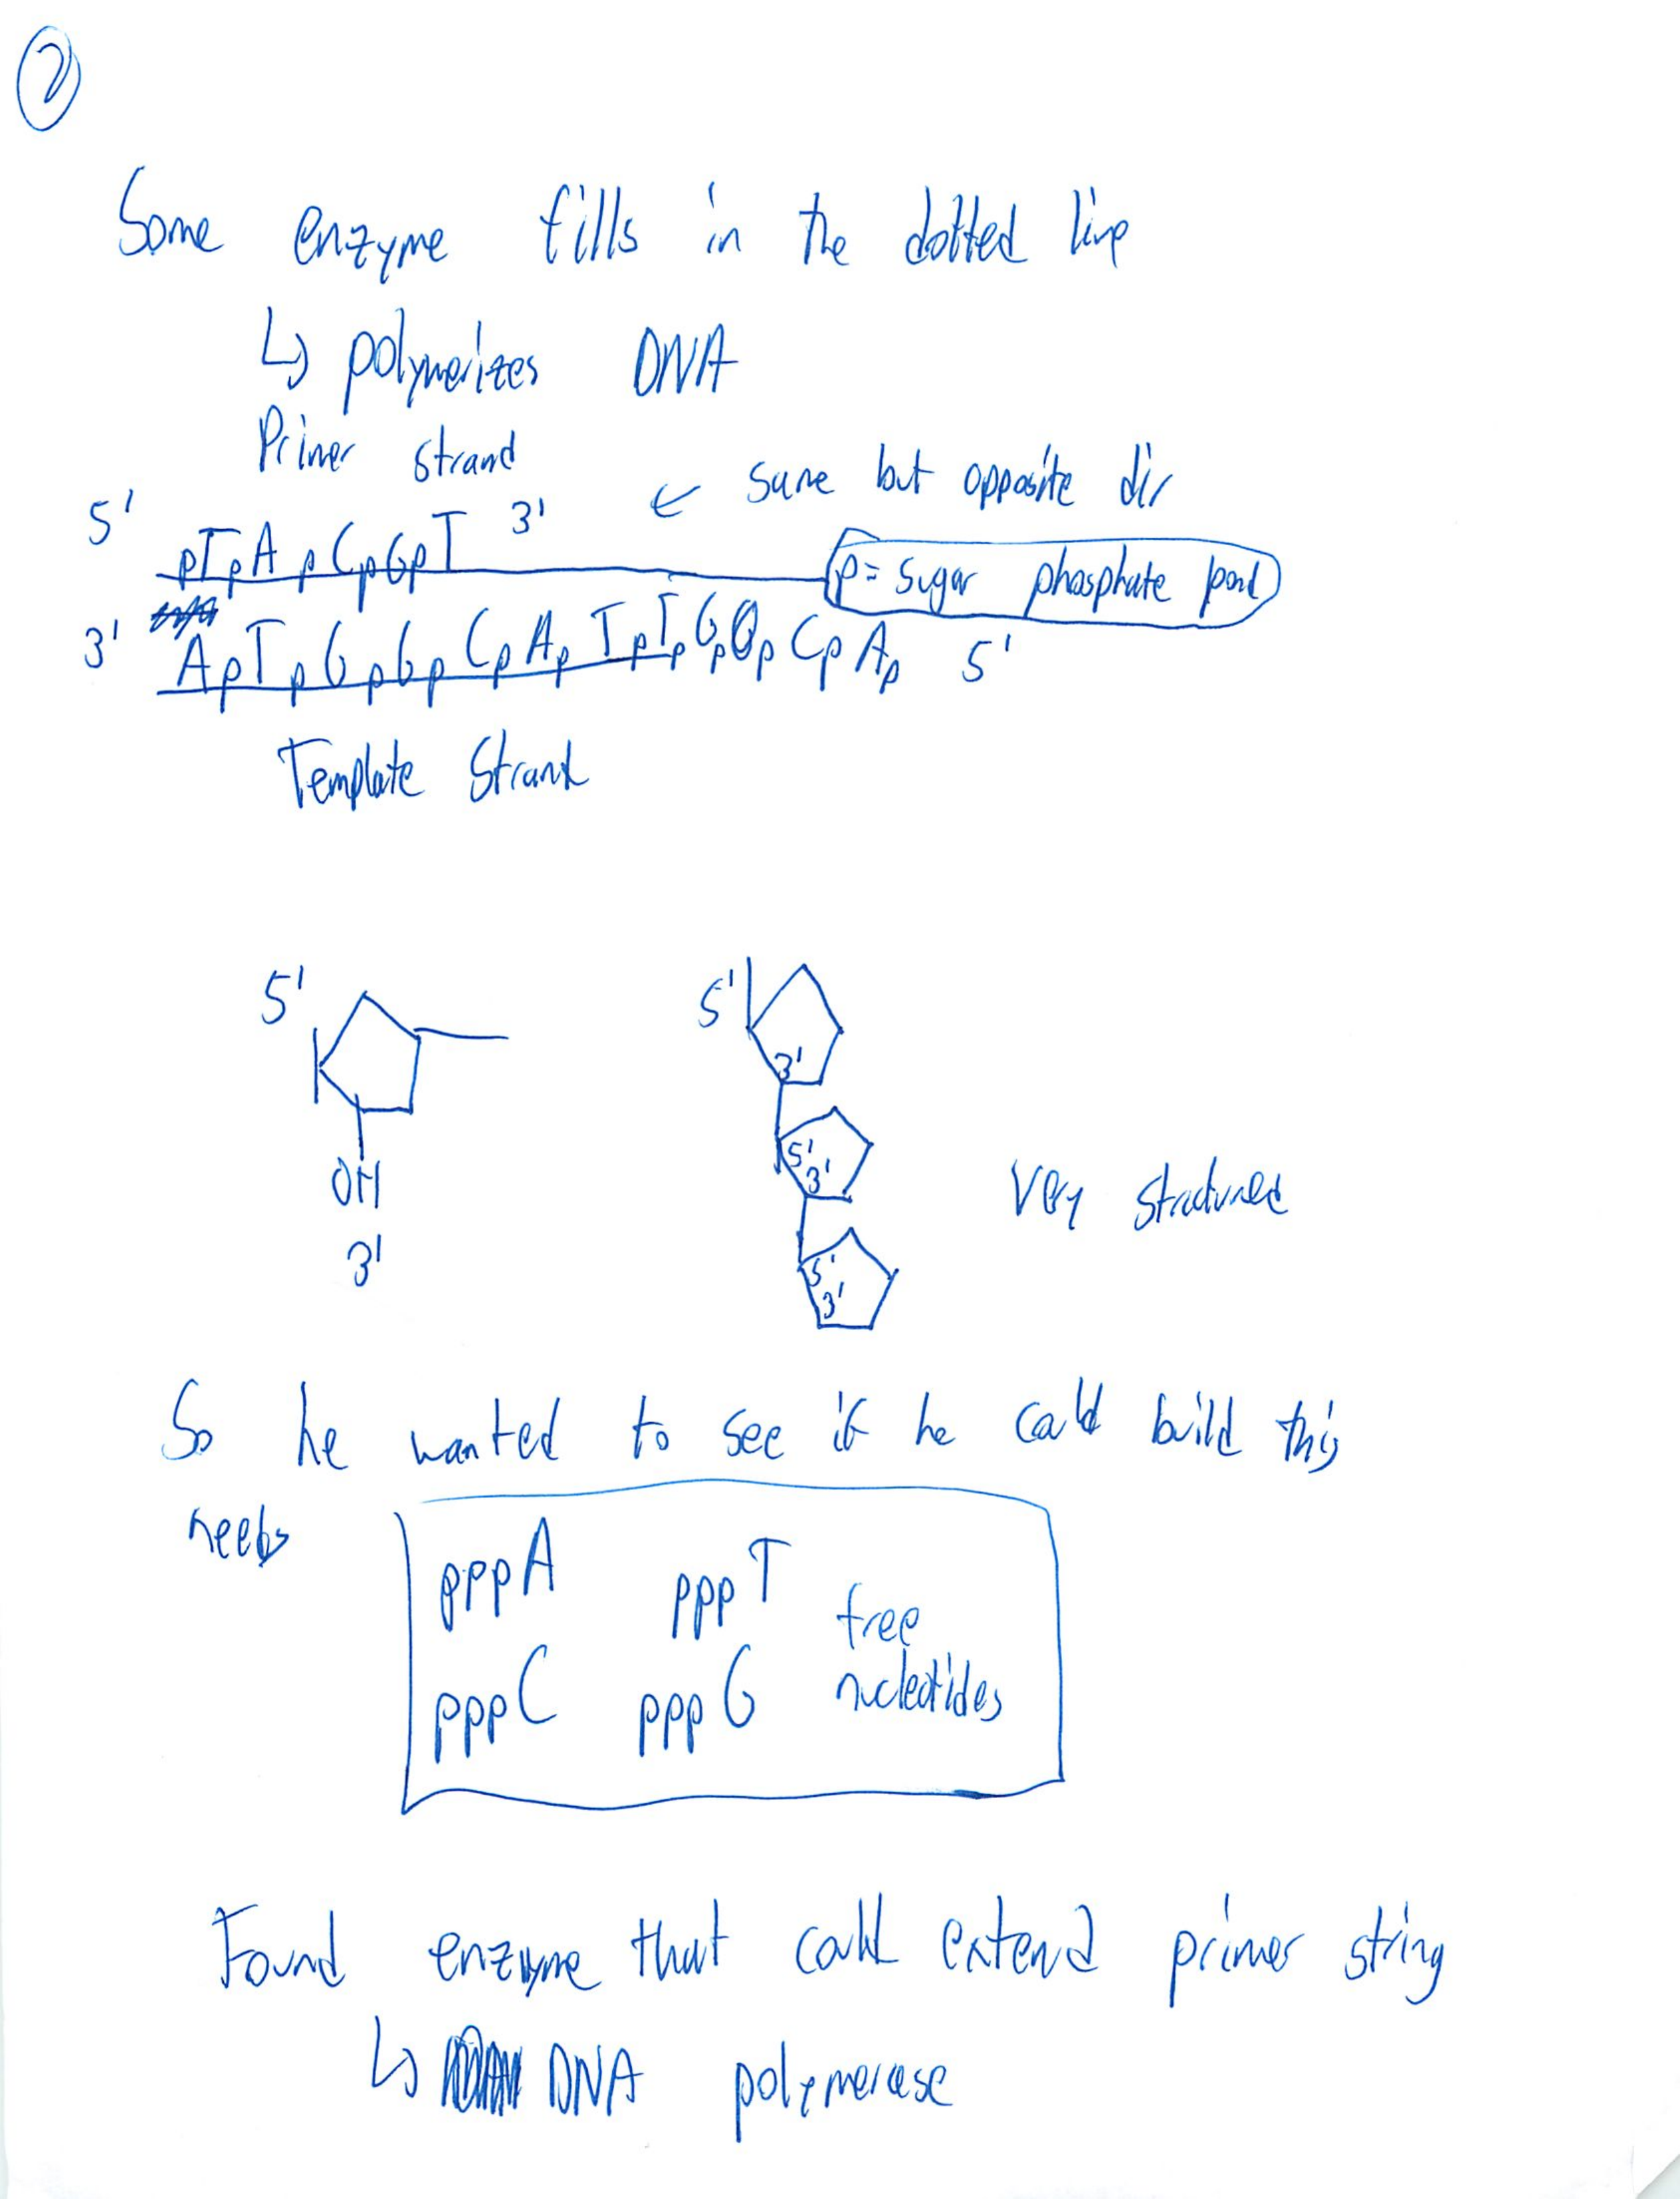 2
Some enzyme fills in the dotted line
↳ polymerizes DNA
Primer strand
← same but opposite dir
5' pTpApCpGpT 3'
p = sugar phosphate bond
3' ApTpGpGpCpApTpTpGp pCpAp 5'
Template Strand
5' 5'
3'
5'
3'
OH
3'
5'
3'
Very structured
So he wanted to see if he could build this
needs
pppA pppT free
pppC pppG nucleotides
Found enzyme that could extend primer string
↳ DNA polymerase